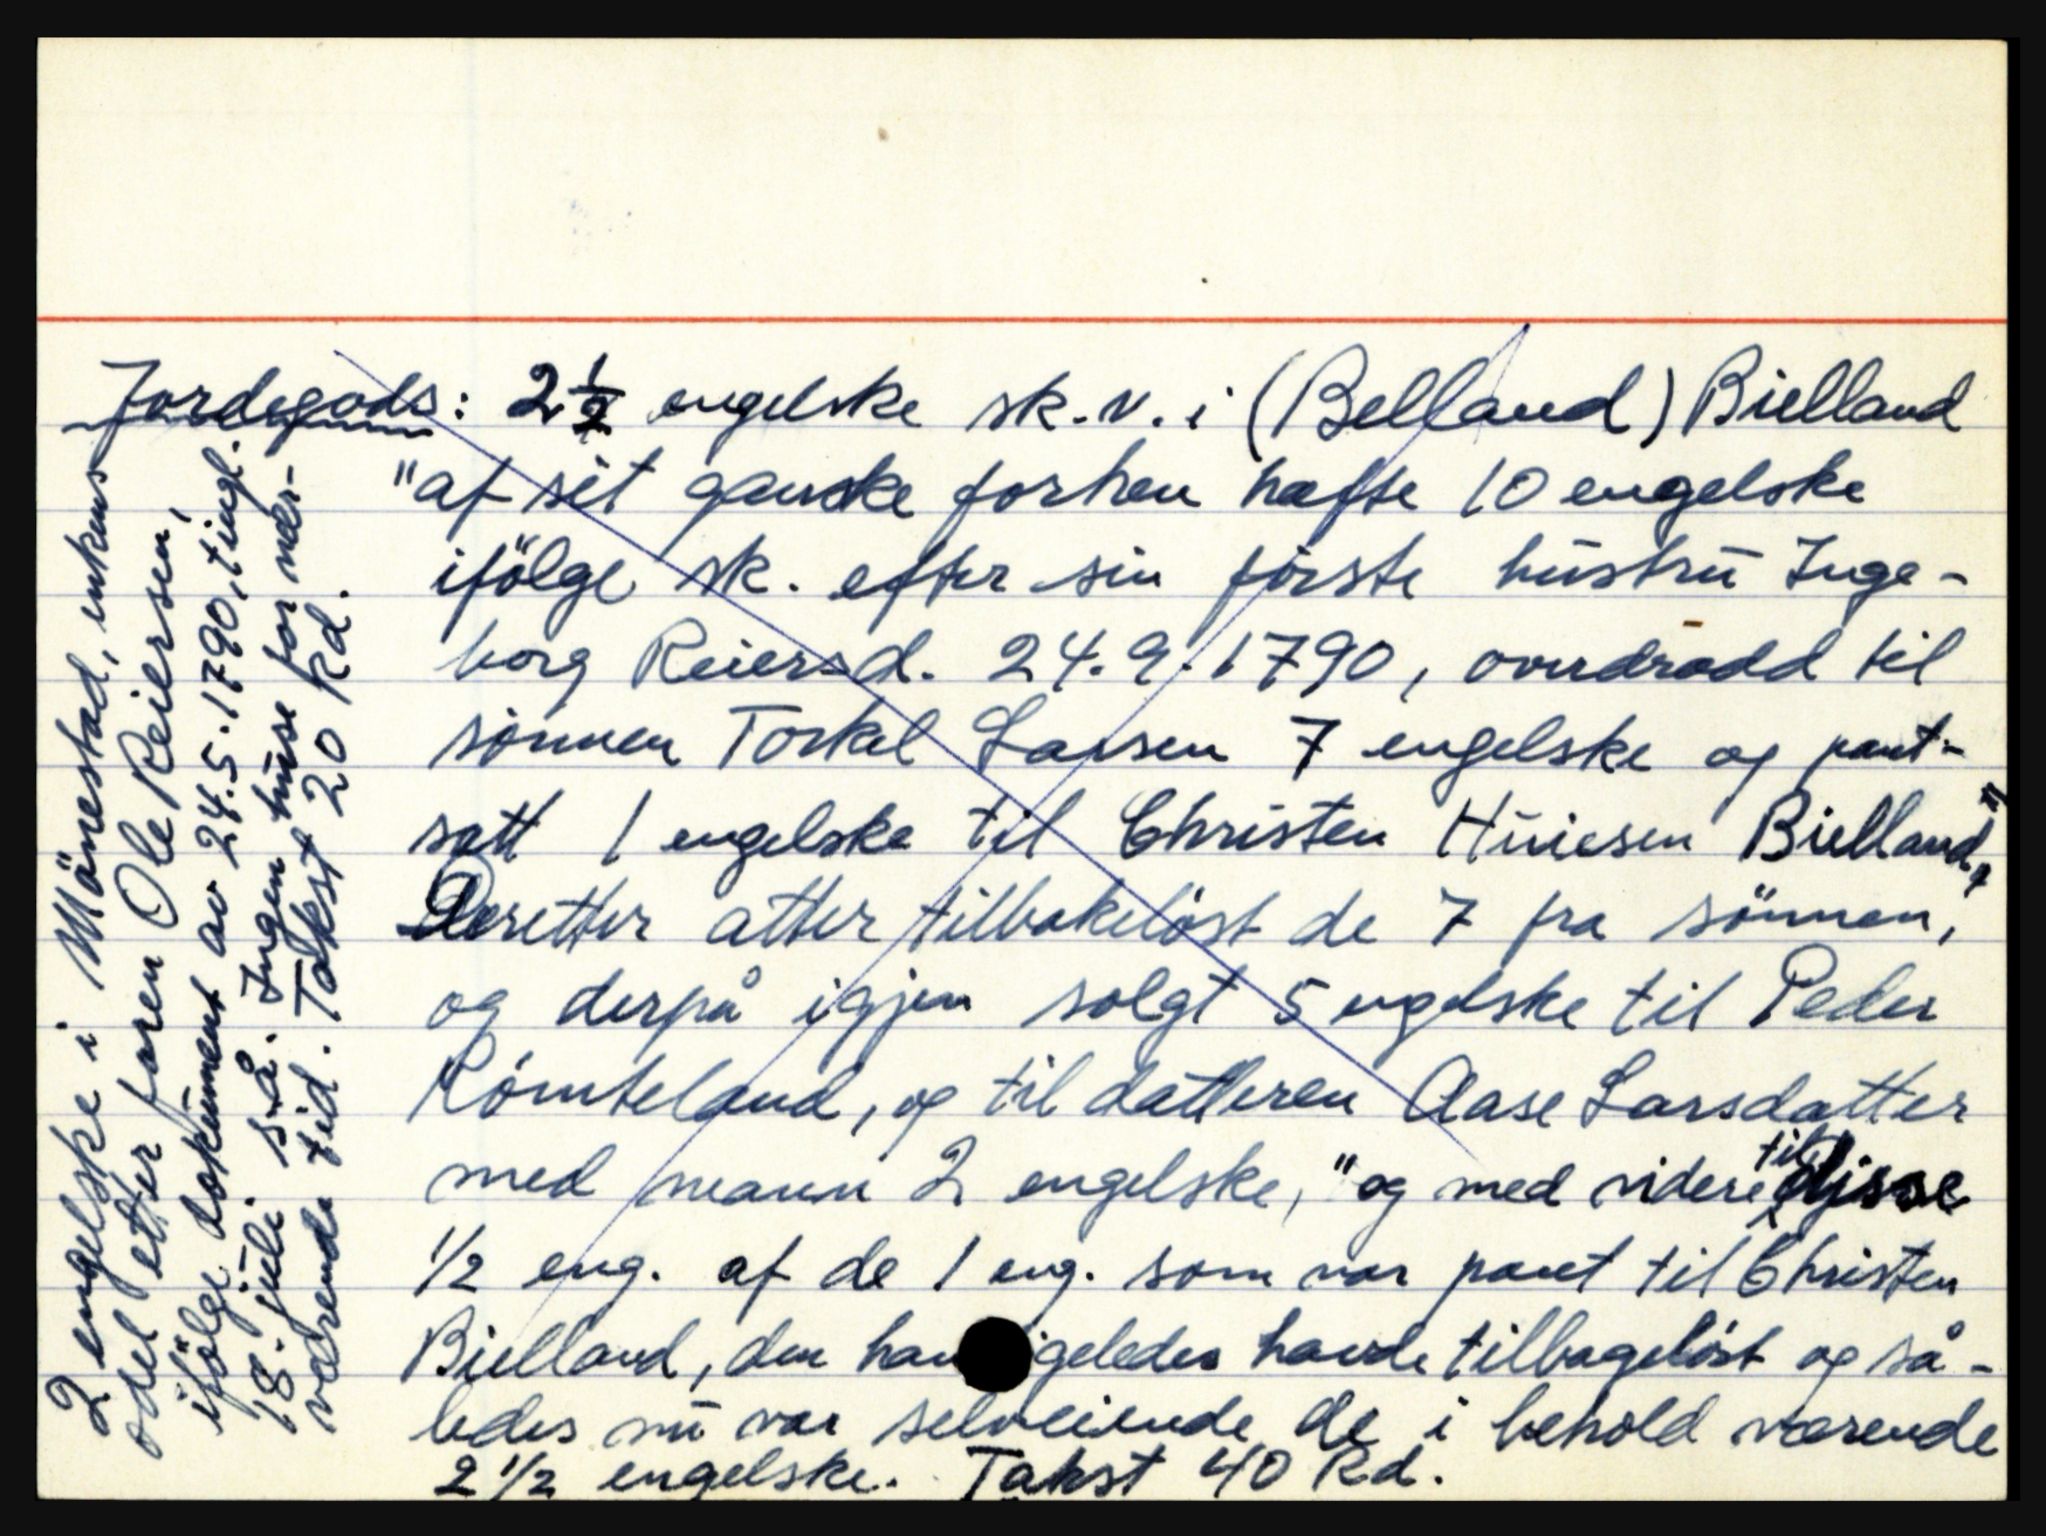 Jordegods: 2 1/2 engelske sk.v. i (Belland) Bielland
"af sit ganske forhen hafte 10 engelske
ifölge sk. efter sin första hüstrü Inge-
borg Reiersd. 24.9.1790, overdradd til
sönnen Torkel Larsen 7 engelske og pant-
satt 1 engelske til Christen Hüiesen Bielland"
Deretter atter tilbakelöst de 7 fra sönnen,
og derpå igjen solgt 5 engelske til Peder
Rømteland, og til datteren Aase Larsdatter
med mann 2 engelske, "og med videre til disse
1/2 eng. af de 1 eng. som var pant til Christen
Bielland, den han igeledes havde tilbageløst og så-
ledes nü var selveiende de i behold værende
2 1/2 engelske. Takst 40 Rd.
2 engelske i Månestad, enkens
odel etter faren Ole Reiersen,
ifölge doküment av 24.5.1790, tingl.
18. juli s.å. Ingen hüse for nær-
værende tid. Takst 20 Rd.